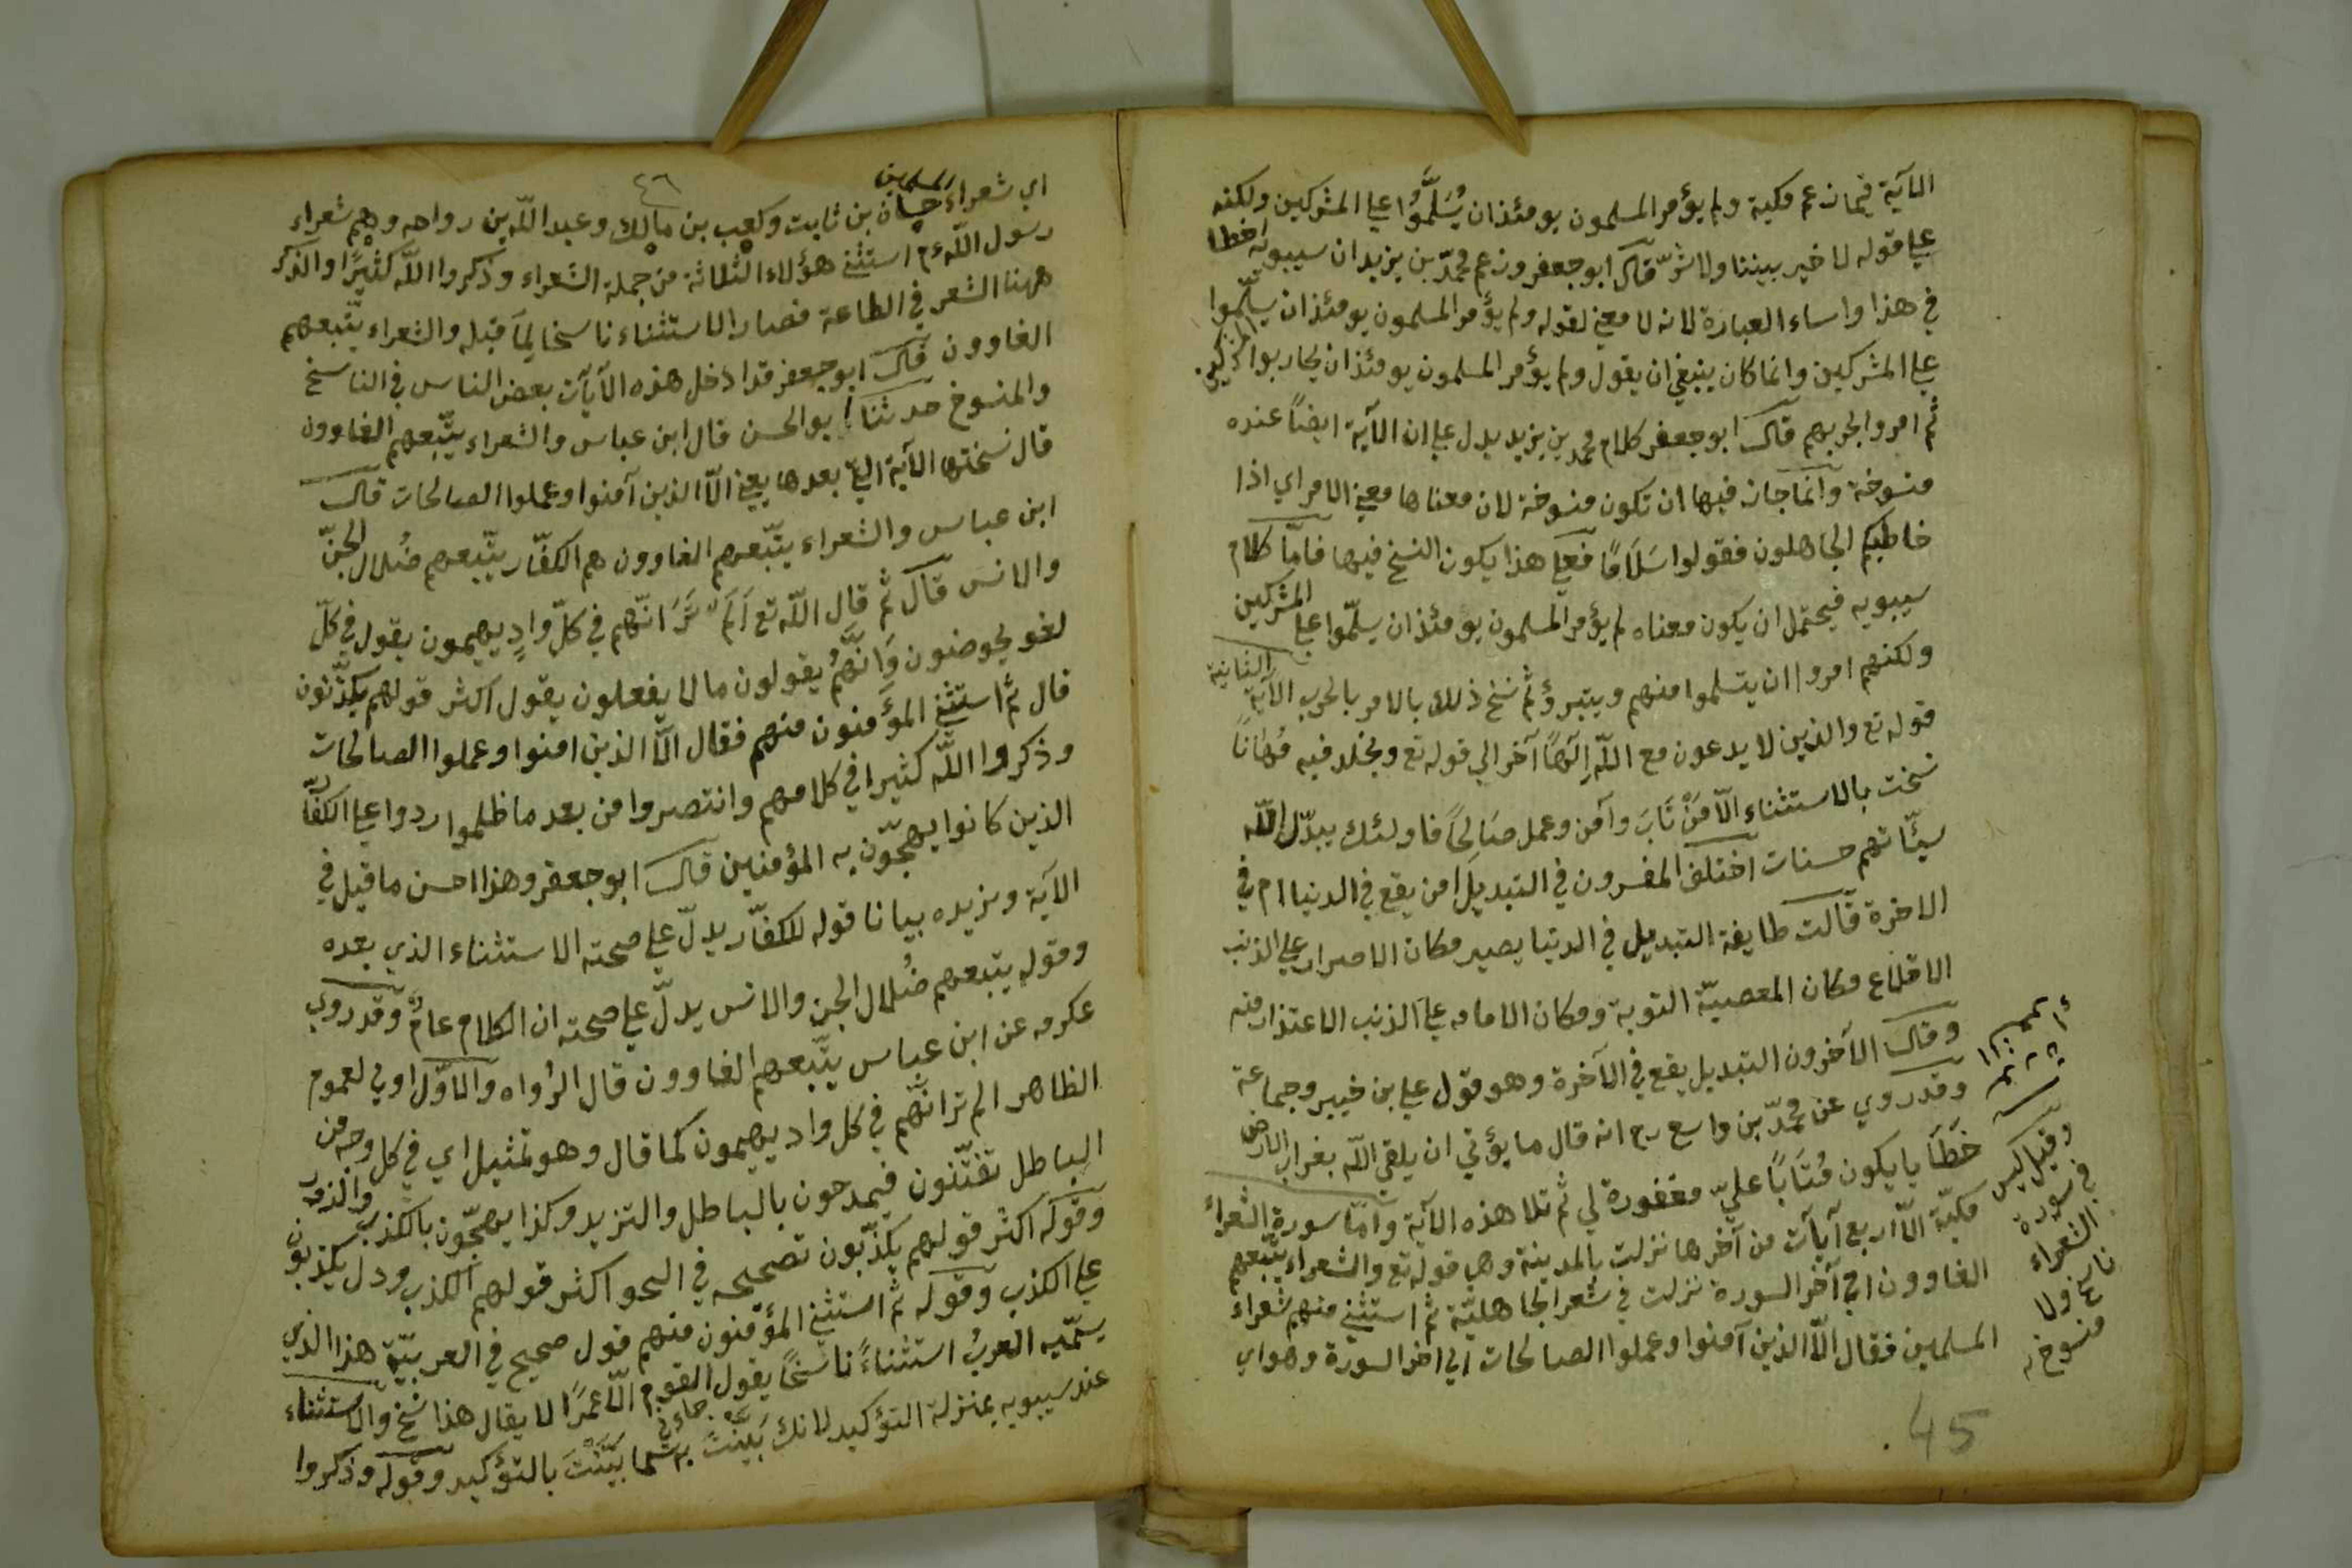 الآية فيما زعم مكية ولم يؤمر المسلمون يومئذ ان يُسَلِّمُوا علي المشركين ولكنه
علي قوله لا خير بيننا ولا شرّ قال ابو جعفر وزعم محمّد بن يزيد ان سيبويه اخطا
في هذا واساء العبارة لانه لا معني لقوله ولم يؤمر المسلمون يومئذ ان يسلّموا
علي المشركين وانما كان ينبغي ان يقول ولم يؤمر المسلمون يومئذ ان يحاربوا المشركين
ثم امروا بحربهم قال ابو جعفر كلام محمد بن يزيد يدل علي ان الآية ايضاً عنده
منسوخة وانما جاز فيها ان تكون منسوخة لان معناها معني الامر اي اذا
خاطبكم الجاهلون فقولوا سَلَامًا فعلي هذا يكون النسخ فيها فامّا كلام
سيبويه فيحتمل ان يكون معناه لم يؤمر المسلمون يومئذ ان يسلّموا علي المشركين
ولكنهم امروا ان يتسلموا منهم ويتبرؤ ثم نسخ ذلك بالامر بالحرب الآية الثانية
قوله تع والذين لا يدعون مع اللّه إلهًا آخر الي قوله تع ويخلد فيه مُهَانًا
نسخت بالاستثناء الّا مَنْ تَابَ وآمن وعمل صَالِحًا فاولئك يبدّل اللّه
سيّاتهم حسنات اختلف المفسرون في التبديل امن يقع في الدنيا ام في
الاخرة قالت طايفة التبديل في الدنيا يصير مكان الاصرار علي الذنب
الاقلاع ومكان المعصيّة التوبة ومكان الاقامه علي الذنب الاعتذار منه
وقال الآخرون التبديل يقع في الآخرة وهو قول علي بن خيير وجماعة
وقد روي عن محمّد بن واسع رح انه قال ما يؤتي ان يلقي اللّه بغراب الارض
خَطَايا يكون مُتَابًا عليّ مغفورة لي ثم تلا هذه الآية وامّا سورة الشعراء
مكيّة الّا اربع آيآت من آخرها نزلت بالمدينة وهي قوله تع والشعراء يتّبعهم
الغاوون الي آخر السورة نزلت في شعر الجاهليّة ثم استثني منهم شعراء
المسلمين فقال الّا الذين آمنوا وعملوا الصالحات الي اخر السورة وهو اي
وقيل ليس
في سورة
الشعراء
ناسخ ولا
منسوخ
45
٤٦
اي شعراء المسلمين حسان بن ثابت وكعب بن مالك وعبد اللّه بن رواحه وهم شعراء
رسول اللّه ءم استثني هؤلاء الثلاثة من جملة الشعراء وذكروا اللّه كثيرًا والذكر
ههنا الشعر في الطاعة فصار الاستثناء ناسخا لِمَا قبله والشعراء يتّبعهم
الغاوون قال ابو جعفر قد ادخل هذه الآيآت بعض الناس في الناسخ
والمنسوخ حدثنا ابو الحسن قال ابن عباس والشعراء يتّبعهم الغاوون
قال نسختها الآية التي بعدها يعني الّا الذين آمنوا وعملوا الصالحات قال
ابن عباس والشعراء يتّبعهم الغاوون هم الكفّار يتّبعهم ضُلال الجنّ
والانس قال ثم قال اللّه تع اَلَمْ تَرَ انّهم في كلّ وادٍ يهيمون يقول في كلّ
لغو يخوضون وَاَنَّهُمْ يقولون ما لا يفعلون يقول اكثر قولهم يكذّبون
قال ثم استثني المؤمنون منهم فقال الّا الذين امنوا وعملوا الصالحات
وذكروا اللّه كثيرا في كلامهم وانتصروا من بعد ما ظلموا ردوا علي الكفّار
الذين كانوا يهجّون به المؤمنين قال ابو جعفر وهذا احسن ما قيل في
الآية ونزيده بيانا قوله للكفّار يدلّ علي صحته الاستثناء الذي بعده
وقوله يتبعهم ضُلال الجن والانس يدلّ علي صحته ان الكلام عامٌّ وقد روي
عكرمه عن ابن عباس يتّبعهم الغاوون قال الرُواه والاوّل اولي لعموم
الظاهر الم تر انّهم في كل واد يهيمون كما قال وهو تمثيل اي في كل وجه من
الباطل تفتّنون فيمدحون بالباطل والتزيد وكذا يهجّون بالكذب والذم
وقوله اكثر قولهم يكذّبون تصحيحه في النحو اكثر قولهم الكذب ودل يكذبون
علي الكذب وقوله ثم استثني المؤمنون منهم قول صحيح في العربيّة هذا الذي
يسمّيه العربُ استثناءً ناسخًا يقول جاءني القوم الّا عمرًا لا يقال هذا نسخ والاستثناء
عند سيبويه بمنزلة التؤكيد لانك بَيَّنْتَ به كما بَيَّنْتَ بالتؤكيد وقوله وذكروا